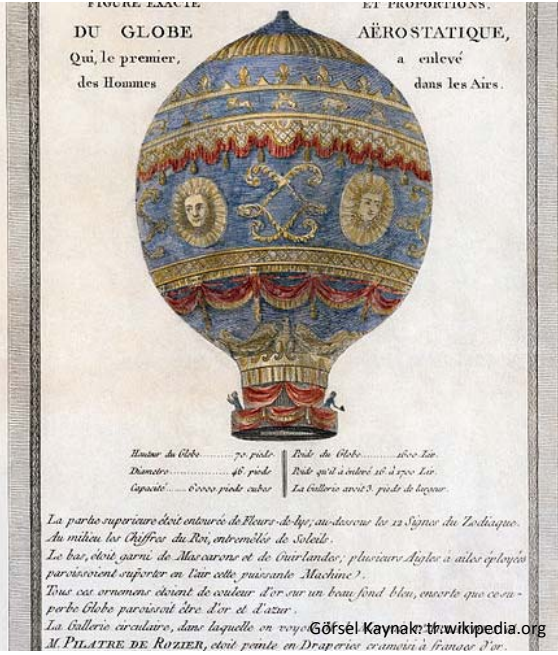 FIGURE EXACTE ET PROPORTIONS,
DU GLOBE AËROSTATIQUE,
Qui, le premier, a enlevé
des Hommes dans les Airs.
Hauteur du Globe........70. pieds
Diametre................46. pieds
Capacité......60000. pieds cubes
Poids du Globe..........1600 Liv.
Poids qu'il à enlevé 16 à 1700 Liv.
La Gallerie avoit 3. pieds de largeur.
La partie superieure étoit entourée de Fleurs-de-lys; au-dessous les 12 Signes du Zodiaque.
Au milieu les Chiffres du Roi, entremêlés de Soleils.
Le bas, étoit garni de Mascarons et de Guirlandes; plusieurs Aigles à ailes éployées
paroissoient supórter en l'air cette puissante Machine.
Tous ces ornemens étoient de couleur d'or sur un beau fond bleu, ensorte que ce su-
perbe Globe paroissoit être d'or et d'azur.
La Gallerie circulaire, dans laquelle on voyoit
Görsel Kaynak: tr.wikipedia.org
M. PILATRE DE ROZIER, etoit peinte en Draperies cramoisi à franges d'or.